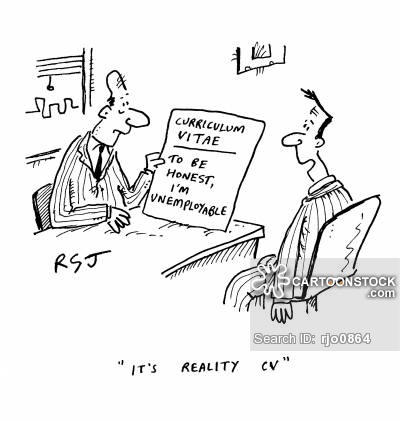 CURRICULUM
VITAE
TO BE
HONEST,
I'M
UNEMPLOYABLE
RGJ
CARTOONSTOCK
.com
Search ID: rjo0864
"IT'S REALITY CV"